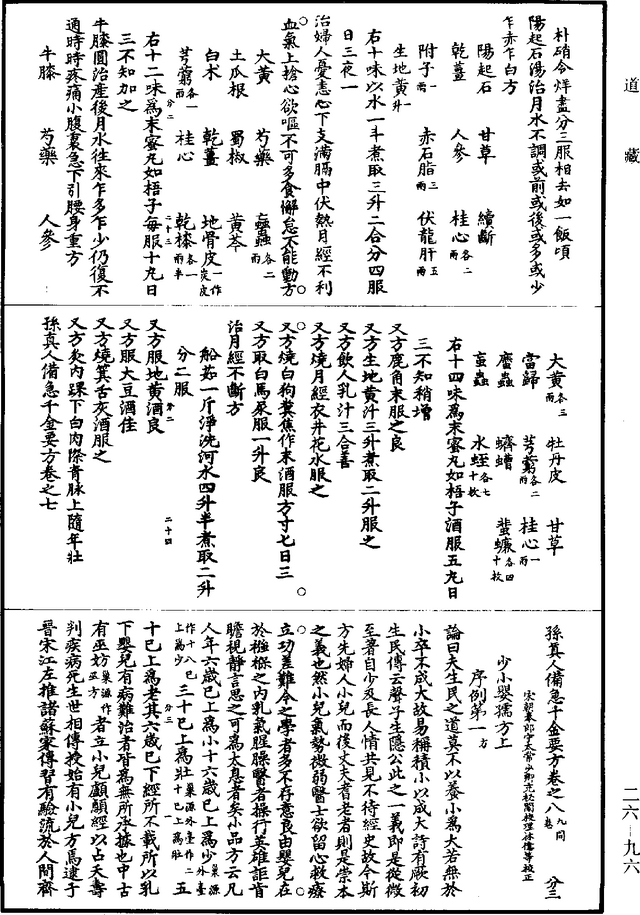 道藏
朴硝令烊盡分三服相去如一飯頃
陽起石湯治月水不調或前或後或多或少
乍赤乍白方
陽起石 甘草 續斷
乾薑 人參 桂心各二兩
附子一兩 赤石脂三兩 伏龍肝五兩
生地黃一升
右十味以水一斗煮取三升二合分四服
日三夜一
治婦人憂恚心下支滿膈中伏熱月經不利
血氣上搶心欲嘔不可多食懈怠不能動方
大黃 芍藥 䗪蟲各二兩
土瓜根 蜀椒 黃芩
白术 乾薑 地骨皮一作炭皮
芎藭各一分二 桂心 乾漆各一兩半
二十三
右十二味爲末蜜丸如梧子每服十丸日
三不知加之
牛膝圓治產後月水往來乍多乍少仍復不
通時時疼痛小腹裏急下引腰身重方
牛膝 芍藥 人參
大黃各三兩 牡丹皮 甘草
當歸 芎藭各二兩 桂心一兩
䗪蟲 蠐螬 蜚蠊各四十枚
蝱蟲 水蛭各七十枚
右十四味爲末蜜丸如梧子酒服五丸日
三不知稍增
又方鹿角末服之良
又方生地黃汁三升煮取二升服之
又方飲人乳汁三合善
又方燒月經衣井花水服之
又方燒白狗糞焦作末酒服方寸七日三
又方取白馬尿服一升良
治月經不斷方
船茹一斤淨洗河水四升半煮取二升
分二服
二十四
又方服地黃酒良分二
又方服大豆酒佳
又方燒箕舌灰酒服之
又方灸內踝下白肉際青脉上隨年壯
孫真人備急千金要方卷之七
孫真人備急千金要方卷之八九同卷 分三
宋朝奉郎守太常少卿充祕閣校理林億等校正
少小嬰孺方上
序例第一方
論曰夫生民之道莫不以養小爲大若無於
小卒不成大故易稱積小以成大詩有厥初
生民傳云聲子生隱公此之一義即是從微
至著自少及長人情共見不待經史故今斯
方先婦人小兒而後丈夫耆老者則是崇本
之義也然小兒氣勢微弱醫士欲留心救療
立功差難今之學者多不存意良由嬰兒在
於襁褓之內乳氣腥臊醫者操行英雄詎肯
瞻視靜言思之可爲太息者矣小品方云凡
人年六歲已上爲小十六歲已上爲少巢源外臺
作十八已上爲少三十已上爲壯巢源外臺作二十已上爲壯五
十已上爲老其六歲已下經所不載所以乳
分三 一
下嬰兒有病難治者皆爲無所承據也中古
有巫妨巢源作巫方者立小兒顱顖經以占夭壽
判疾病死生世相傳授始有小兒方焉逮于
晉宋江左推諸蘇家傳習有驗流於人間齊
二六－九六